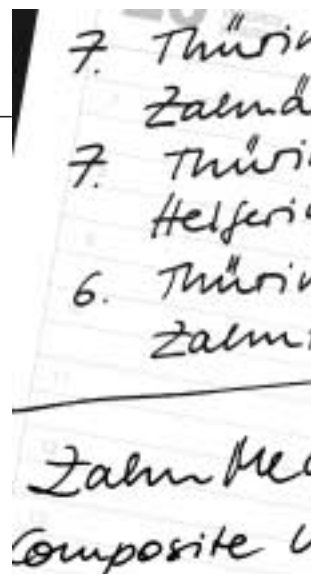 7. Thürin
Zahnä
7. Thürin
Helferin
6. Thürin
Zahn
Zahn Med
Composite